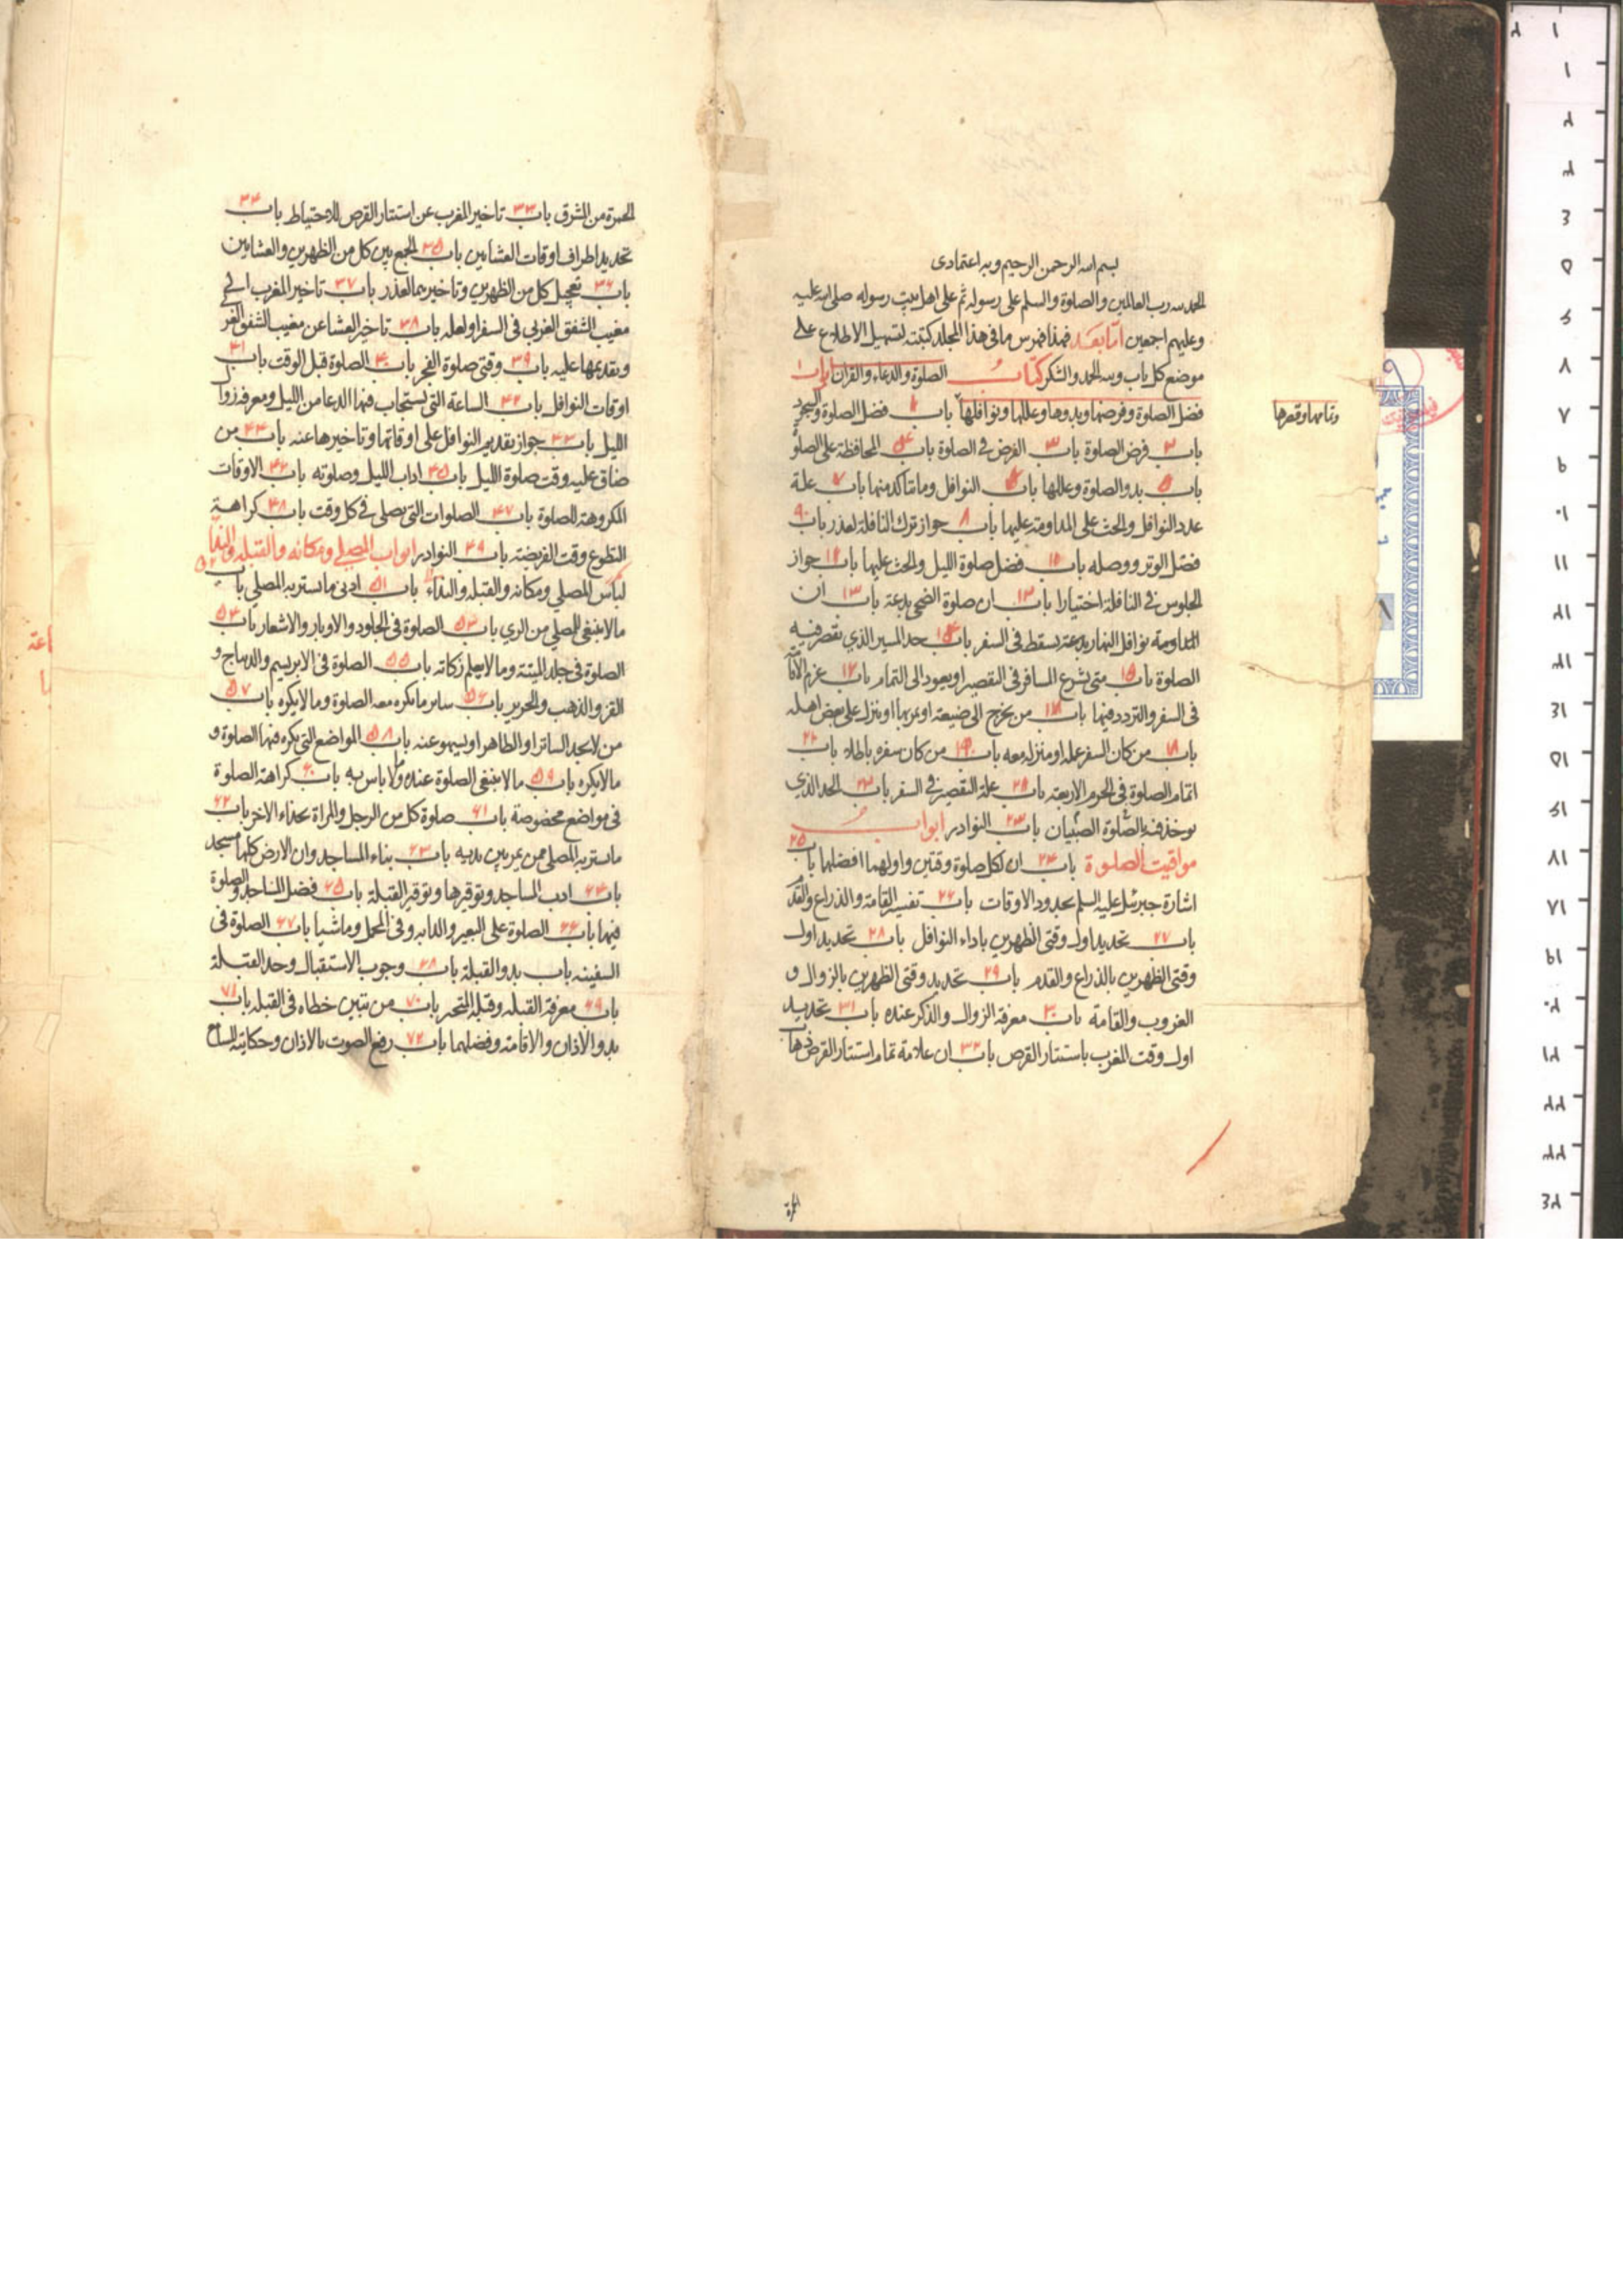 بسم الله الرحمن الرحيم وبه اعتمادى
الحمد لله رب العالمين والصلوة والسلم على رسوله ثم على اهل بيت رسوله صلى الله عليه
وعليهم اجمعين اما بعد فهذا فهرس ما فى هذا المجلد كتبته لتسهيل الاطلاع على
موضع كل باب ولله الحمد والشكر كتاب الصلوة والدعاء والقران ابواب
فضل الصلوة وفرضها وبدوها وعللها ونوافلها باب فضل الصلوة والسجود
وتمامها وقصرها
باب ٢ فرض الصلوة باب ٣ الفرض فى الصلوة باب ۴ المحافظة على الصلوة
باب ۵ بدو الصلوة وعللها باب ۶ النوافل وما تتأكد منها باب ٧ علة
عدد النوافل والحث على المداومة عليها باب ٨ جواز ترك النافلة لعذر باب ٩
فضل الوتر ووصله باب فضل صلوة الليل والحث عليها باب جواز
الجلوس فى النافلة اختيارا باب ان صلوة الضحى بدعة باب ١٣ ان
المداومة نوافل النهار بدعة يسقط فى السفر باب ١۴ حد المسير الذي يقصر فيه
الصلوة باب ١۵ متى يشرع المسافر فى التقصير او يعود الى التمام باب ١۶ عزم الاقامة
فى السفر والتردد فيها باب ١٧ من يخرج الى ضيعته او يمر بها او ينزل على بعض اهله
باب ١٨ من كان السفر عمله او منزله معه باب من كان سفره باطلا باب
اتمام الصلوة فى الحرم الاربعة باب علة التقصير فى السفر باب الحد الذي
يوخذ فيه الصلوة الصبيان باب ٢٣ النوادر ابواب
مواقيت الصلوة باب ٢۴ ان لكل صلوة وقتين واولهما افضلهما باب ٢۵
اشارة جبرئيل عليه السلم بحدود الاوقات باب ٢۶ تفسير القامة والذراع والقدم
باب ٢٧ تحديد اول وقتى الظهرين باداء النوافل باب ٢٨ تحديد اول
وقتى الظهرين بالذراع والقدم باب ٢٩ تحديد وقتى الظهرين بالزوال و
الغروب والقامة باب ٣٠ معرفة الزوال والذكر عنده باب ٣١ تحديد
اول وقت المغرب باستتار القرص باب ٣٢ ان علامة تمام استتار القرص ذهاب
الحمرة من المشرق باب ٣٣ تاخير المغرب عن استتار القرص للاحتياط باب ٣۴
تحديد اطراف اوقات العشاءين باب ٣۵ الجمع بين كل من الظهرين والعشاءين
باب ٣۶ تعجيل كل من الظهرين وتاخيرهما لعذر باب ٣٧ تاخير المغرب الى
مغيب الشفق الغربي فى السفر او لعله باب ٣٨ تاخير العشا عن مغيب الشفق الغر
وتقديمها عليه باب ٣٩ وقتى صلوة الفجر باب ۴٠ الصلوة قبل الوقت باب ۴١
اوقات النوافل باب ۴٢ الساعة التى يستجاب فيها الدعا من الليل ومعرفة زوال
الليل باب ۴٣ جواز تقديم النوافل على اوقاتها وتاخيرها عنه باب ۴۴ من
ضاق عليه وقت صلوة الليل باب ۴۵ اداب الليل وصلوته باب ۴۶ الاوقات
المكروهة للصلوة باب ۴٧ الصلوات التى يصلى فى كل وقت باب ۴٨ كراهة
التطوع وقت الفريضة باب ۴٩ النوادر ابواب المصلى ومكانه والقبلة والندا
لباس المصلي ومكانه والقبله والنداء باب ۵١ ادنى ما يستر به المصلي باب ۵٢
ما لا ينبغى للمصلي من الزي باب ۵٣ الصلوة فى الجلود والاوبار والاشعار باب ۵۴
الصلوة فى جلد الميتة وما لا يعلم زكاته باب ۵۵ الصلوة فى الابريسم والديباج و
القز والذهب والحرير باب ۵۶ ساير ما يكره معه الصلوة وما لا يكره باب ۵٧
من لا يجد الساتر او الطاهر او يسهو عنه باب ۵٨ المواضع التى يكره فيها الصلوة و
ما لا يكره باب ۵٩ ما لا ينبغى الصلوة عنده وما لا باس به باب ۶٠ كراهة الصلوة
فى مواضع مخصوصة باب ۶١ صلوة كل من الرجل والمراة بحذاء الاخر باب ۶٢
ما يستر به المصلى ممن يمر بين يديه باب ۶٣ بناء المساجد وان الارض كلها مسجد
باب ۶۴ ادب المساجد وتوقيرها وتوقير القبلة باب ۶۵ فضل المساجد والصلوة
فيها باب ۶۶ الصلوة على البعير والدابه وفى المحمل وماشيا باب ۶٧ الصلوة فى
السفينه باب بدو القبلة باب ۶٨ وجوب الاستقبال وحد القبلة
باب ۶٩ معرفة القبلة وقبلة المتحير باب ٧٠ من تبين خطاه فى القبله باب ٧١
بدو الاذان والاقامة وفضلهما باب ٧٢ رفع الصوت بالاذان وحكايته السامع